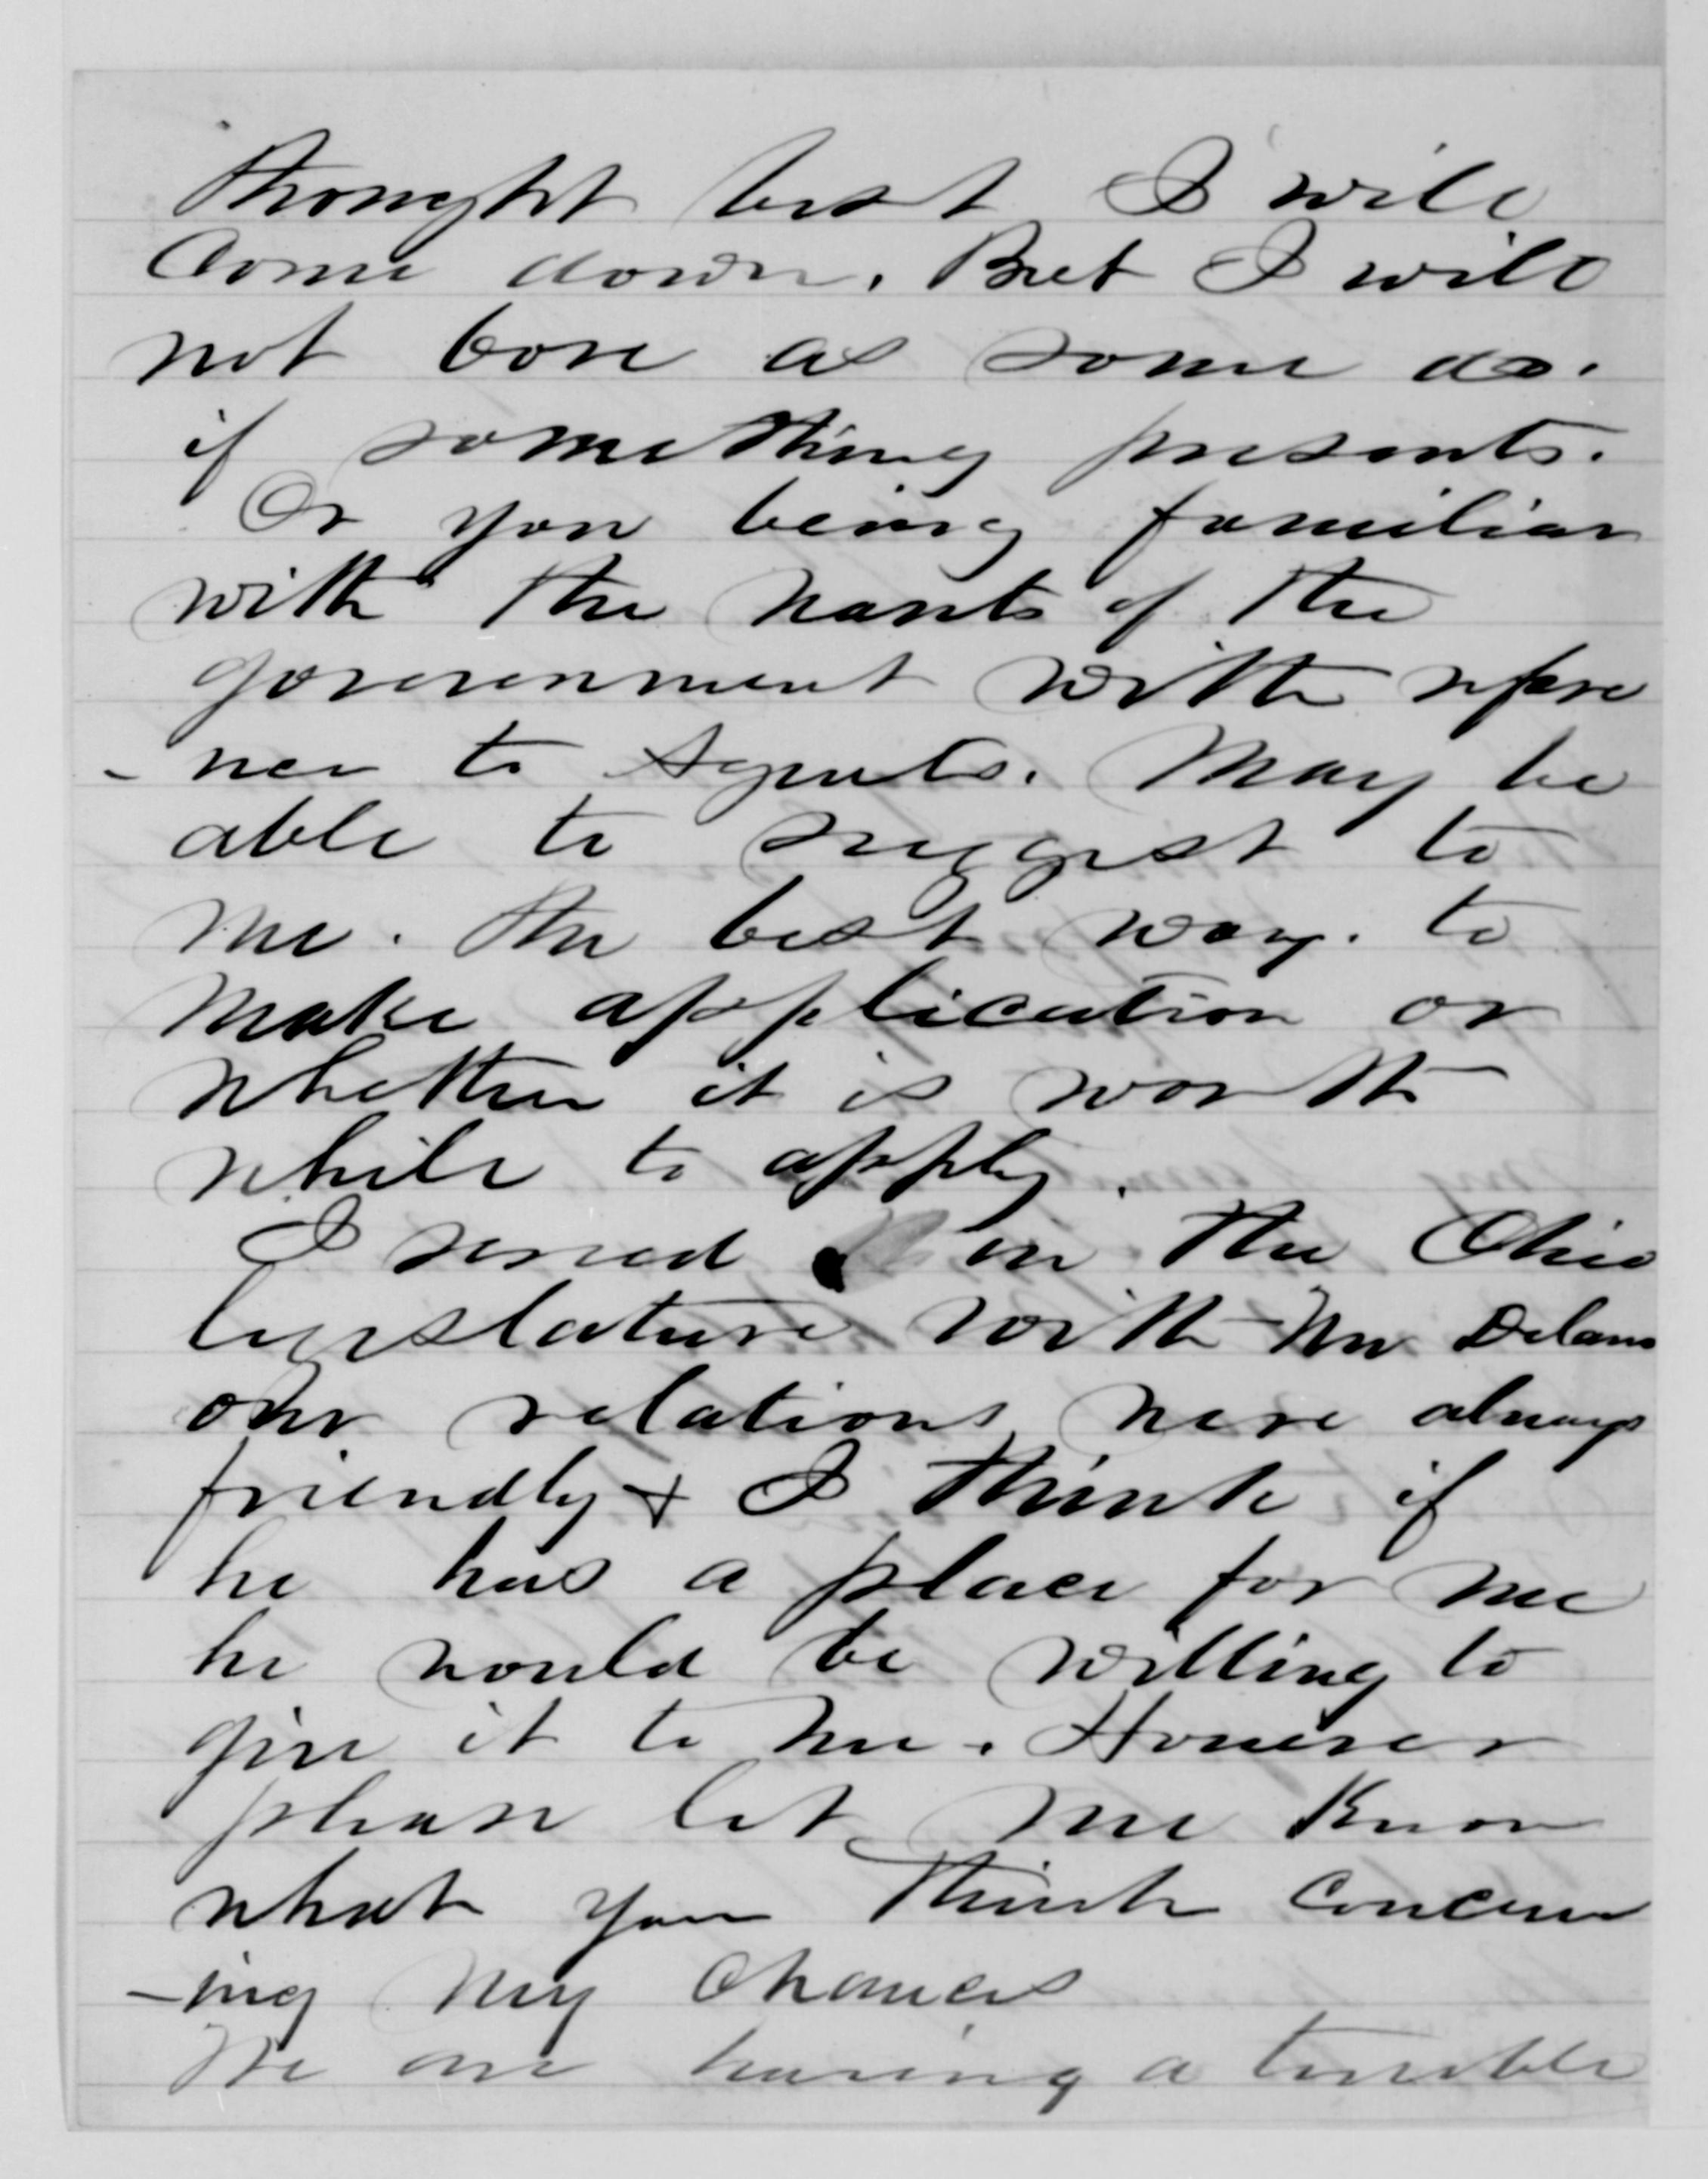 thought best I will
Come down. But I will
not bore as some do.
if something presents.
Or you being familiar
with the wants of the
government with refere
- nce to Agents. May be
able to suggest to
me. the best way. to
make application or
whether it is worth
while to apply.
I served in the Ohio
legislature with Mr Delano
our relations were always
friendly & I think if
he has a place for me
he would be willing to
give it to me. However
please let me know
what you think concern
-ing my chances
We are having a terrible